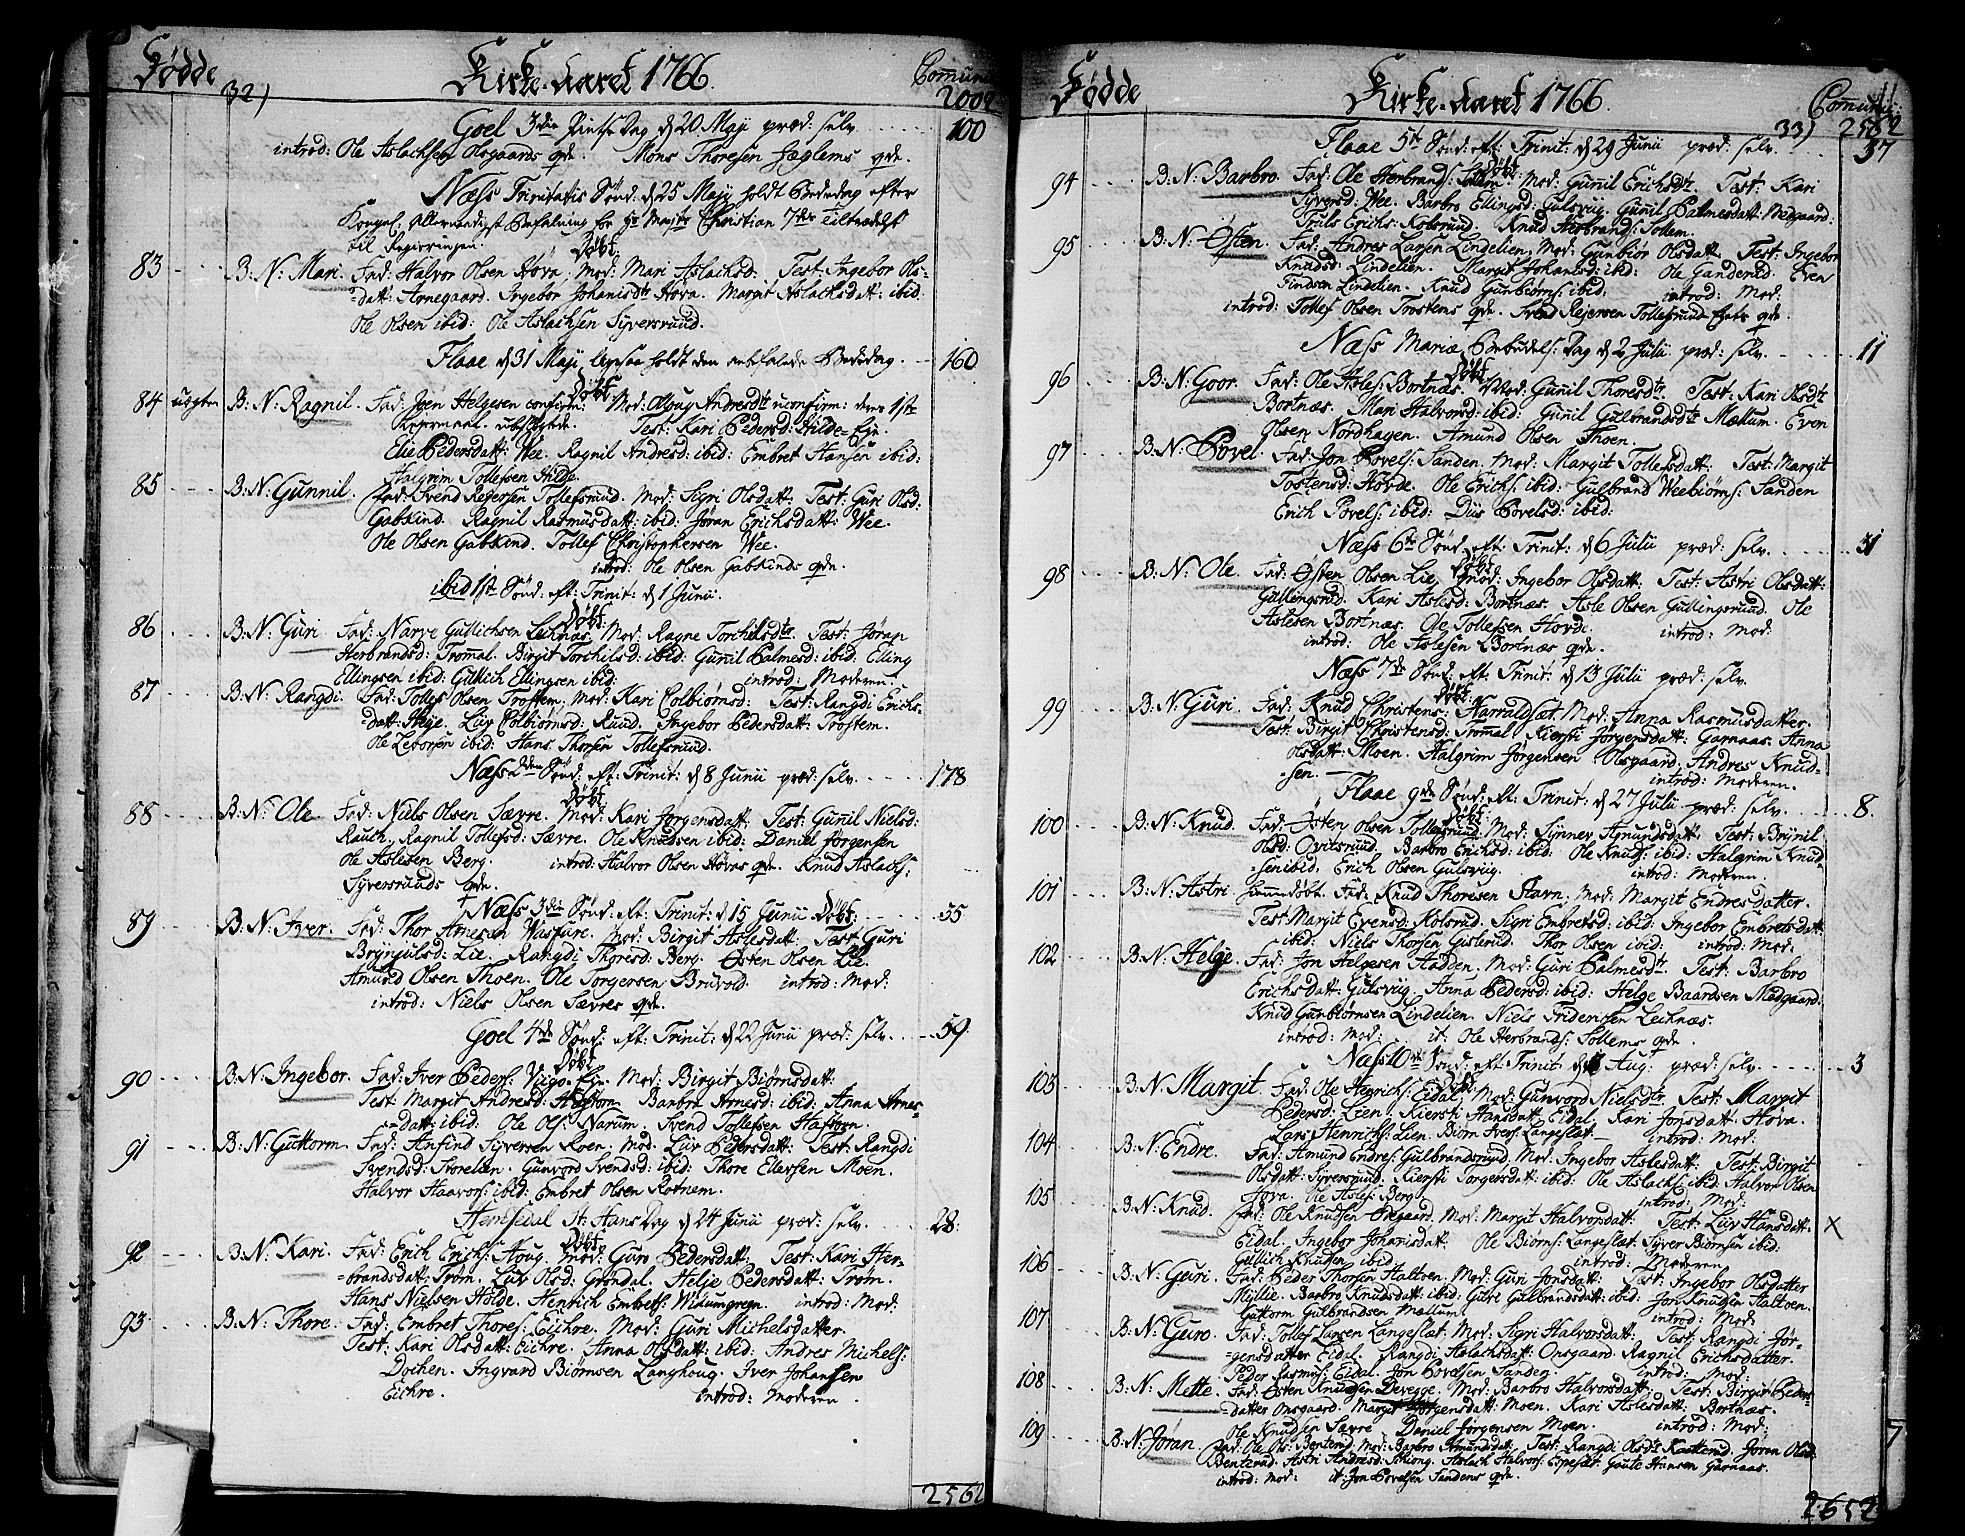 Fødde
32)
Kirke-Aaret 1766.
Comuni
2002
Goel 3die Pintse Dag d 20 Maji præd: selv 100
introd: Ole Aslachsen Olsgaards qde. Mons Thoresen Hæglems qde.
Næss Trinitatis Sønd: d 25 Maji holdt Bededag efter
Kongel. Allernaadigst Befalning for Hs Majts Christian 7des tiltrædelse
til Regieringen.
Døbt.
83 B: N: Mari. Fad: Halvor Olsen Høva, Mod: Mari Aslachsd: Test: Ingebor Ols-
datt: Arnegaard. Ingebor Johanisdtr Høva. Margit Aslachsdatt: ibid:
Ole Olsen ibid: Ole Aslachsen Syversruud.
Flaae d 31 Maji ligesaa holdt den anbefalede Bededag. 160
Døbt
84 uægte B: N: Ragnil. Fad: Joen Helgesen confirm: Mod: Olaug Andresdtr uconfirm: deres 1ste
Leyermaal. Test: Kari Pedersd: Hilde-Eje
Elie Pedersdatt: Wee. Ragnil Andresd: ibid: Embret Hansen ibid:
Halgrim Tollefsen Hilde.
85 B: N: Gunnil. Fad: Svend Regersen Tollefsruud. Mod: Sigri Olsdatt: Test: Guri Olsd:
Gabskind. Ragnil Rasmusdatt: ibid: Jøran Erichsdatt: Wee.
Ole Olsen Gabskind. Tollef Christophersen Wee.
introd: Ole Olsen Gabskinds qde.
ibid 1ste Sønd: eft: Trinit: d 1 Junii.
Døbt:
86 B: N: Guri. Fad: Narve Gullichsen Leiknæs. Mod: Ragne Torchilsdtr Test: Jøran
Herbrandsd: Trommal. Birgit Torchilsd: ibid: Gunnil Palmesd: ibid: Elling
Ellingsen ibid: Gullich Ellingsen ibid: introd: Moderen.
87 B: N: Rangdi. Fad: Tollef Olsen Trostem. Mod: Kari Colbiørnsd: Test: Rangdi Erichs-
datt: Stxje. Liv Colbiørnsd: Ruud. Ingebor Pedersdatt: Trostem.
Ole Levorsen ibid: Hans Thorsen Tollefsruud.
Næss 2den Sønd: eft: Trinit: d 8 Junii præd: selv. 178
Døbt.
88 B: N: Ole Fad: Niels Olsen Sævre. Mod: Kari Jørgensdatt: Test: Gunil Nielsd:
Rauch. Ragnil Tollefsd: Sævre. Ole Knudsen ibid: Daniel Jørgensen
Ole Aslesen Berg. introd: Halvor Olsen Høvas qde. Knud Aslachs:
Syversruuds qde.
Næss 3die Sønd: eft: Trinit: d 15 Junii Døbt: 55
89 B: N: Iver. Fad: Thor Arnesen Vasfare. Mod: Birgit Aslesdatt: Test: Guri
Brynjulsd: Lie. Rangdi Thoresd: Berg. Østen Olsen Lie.
Amund Olsen Thoen. Ole Torgersen Bruvold. introd: Mod:
introd: Niels Olsen Sævres qde.
Goel 4de Sønd: eft: Trinit: d 22 Junii præd: selv. 59.
Døbt
90 B: N: Ingebor. Fad: Iver Peders: Viigo-Eje. Mod: Birgit Biørnsdatt:
Test: Margit Andresd: Haftorn Barbro Arnesd: ibid: Anna Arnes-
datt: ibid: Ole Ols: Narum. Svend Tollefsen Haftorn.
91 B: N: Guttorm. Fad: Anfind Syversen Roen. Mod. Liv Pedersdatt: Test: Rangdi
Svendsd: Storelien. Gunvord Svendsd: ibid: Thore Ellevsen Moen.
Halvor Haavors: ibid: Embret Olsen Rotnem.
Hemsedal St: Hans Dag d 24 Junii præd: selv. 28.
Døbt
92 B: N: Kari. Fad: Erich Erichs: Houg. Mod: Guro Pedersdatt: Test: Kari Her-
brandsdatt: Trøm. Liv Olsd: Grøndal. Helje Pedersdatt: Trøm.
Hans Nielsen Holde. Henrich Embrets: introd: Mod:
93 B: N: Thore. Fad: Embret Thores: Eichre. Mod: Guri Michelsdatter
Test: Kari Olsdatt: Eichre. Anna Olsdatt: ibid: Andres Michels:
Dochen. Ingvard Biørnsen Langhoug. Iver Johansen
Eichre. introd: Moderen.
2562
Fødde
Kirke-Aaret 1766.
33)
Comuni:
2562
Flaae 5te Sønd: eft: Trinit: d 29 Junii præd: selv. 37
Døbt
94 B: N: Barbro. Fad: Ole Herbrands: Sollem. Mod: Gunnil Erichsdtr. Test: Kari
Syversd: Wee. Barbro Ellingsd: Gulsvig. Gunnil Palmesdatt: Medgaard.
Truls Erichs: Kolsrud. Knud Herbrands: Sollem.
95 B: N: Østen. Fad: Andres Larsen Lindelien. Mod: Gunbiør Olsdatt. Test: Ingebor
Knudsd: Lindelien. Margit Johansd: ibid: Ole Ganderud. Even
Findsen Lindelien. Knud Gunbiørns: ibid: introd: Mod:
introd: Tollef Olsen Trostems qde. Svend Rejersen Tollefsruud-Ejets qde.
Næss Mariæ Besøgels: Dag d 2 Julii præd: selv. 11
Døbt
96 B: N: Goor. Fad: Ole Asles: Bortnæs. Mod: Gunnil Thoresdtr Test: Kari Olsdtr
Bortnæs. Mari Halvorsd: ibid: Gunil Gulbrandsdtr Mællum. Even
Olsen Nordhagen. Amund Olsen Thoen.
97 B: N: Povel Fad: Jon Povels: Sanden. Mod: Margit Tollefsdatt: Test: Margit
Tostensd: Hovde. Ole Erichs: ibid: Gulbrand Weebiørns: Sanden
Erich Povels: ibid: Diis Povelsd: ibid:
Næss 6te Sønd: eft: Trinit: d 6 Julii præd: selv. 31
Døbt
98 B: N: Ole. Fad: Østen Olsen Lie. Mod: Ingebor Olsdatt. Test: Astri Olsdatt:
Gullingsrud. Kari Aslesd: Bortnæs. Asle Olsen Gullingsruud. Ole
Aslesen Bortnæs. Ole Tollefsen Hovde. introd: Mod:
introd: Ole Aslesen Bortnæs qde.
Næss 7de Sønd: eft: Trinit: d 13 Julii præd: selv.
Døbt
99 B: N: Guri. Fad: Knud Christens: Harraldsæt. Mod: Anna Rasmusdatter.
Test: Birgit Christensd: Trommal Kiersti Jørgensdatt: Garnaas. Anna
Olsdatt: Moen. Halgrim Jørgensen Olsgaard. Andres Knud-
sen. introd: Moderen.
Flaae 9de Sønd: eft: Trinit: d 27 Julii præd: selv. 8.
Døbt:
100 B: N: Knud. Fad: Østen Olsen Tollefsruud. Mod: Synnev Amundsdatt. Test: Brynil
Olsd: Qvitsruud. Barbro Erichsd: ibid: Ole Knuds: ibid: Halgrim Knud-
sen ibid. Erich Olsen Gulsvig. introd: Moderen.
101 B: N: Astri hiemmedøbt. Fad: Knud Thoresen Stavn. Mod: Margit Endresdatter.
Test: Margit Evensd: Kolsrud. Sigri Embretsd: ibid: Ingebor Embretsdatt
ibid: Niels Thorsen Gislerud. Thor Olsen ibid: introd: Mod:
102 B: N: Helge. Fad: Jon Helgesen Hadden. Mod: Guri Palmesdtr. Test: Barbro
Erichsdatt: Gulsvig. Anna Pedersd: ibid: Helge Baardsen Medgaard:
Knud Gunbiørnsen Lindelien. Niels Fridensen Leiknæs.
introd: Mod: it: Ole Herbrands: Sollems qde.
Næss 10de Sønd: eft: Trinit d Aug: præd: selv. 3
Døbt:
103 B: N: Margit Fad: Ole Henrichs: Eidal. Mod: Gunvord Nielsdtr. Test: Margit
Pedersd: Lien. Kiersti Hansdatt: Eidal. Kari Jonsdatt: Høva.
Lars Henrichs: Lien. Biørn Ivers: Langeslæt. introd: Mod:
104 B: N: Endre. Fad: Amund Endres: Gulbrandsruud, Mod: Ingebor Aslesdatt: Test: Birgit
Olsdatt: Syversruud. Kiersti Torgersdatt: ibid: Ole Aslachs: ibid: Halvor Olsen
Høva. Ole Asles: Berg. introd: Mod:
105 B: N: Knud. Fad: Ole Knudsen Ødegaard. Mod: Margit Halvorsdatt: Test: Liv Hansdatt: X
Eidal. Ingebor Johanisdatt: Ole Biørns: Langeslæt. Syver Biørnsen ibid:
Gullich Knudsen ibid. introd: Moderen.
106 B: N: Guri. Fad: Peder Thorsen Haltoen. Mod: Guri Jonsdatt: Test: Ingebor Olsdatter
Myllie. Barbro Knudsdatt: ibid: Guri Gulbrandsdatt: ibid: Jon Knudsen Haltoen.
Guttorm Gulbrandsen Mællum. introd: Mod:
107 B: N: Guro. Fad: Tollef Larsen Langeslæt. Mod: Sigri Halvorsdatt: Test: Rangdi Jør-
gensdatter Eidal. Rangdi Aslachsdatt: Onsgaard. Ragnil Erichsdatter.
Peder Rasmus: Eidal. Jon Povelsen Sanden. introd: Mod:
108 B: N: Mette. Fad: Østen Knudsen Devegge. Mod: Barbro Halvorsdatt: Test: Birgit Peders-
datter Onsgaard. Margit Jørgensdatt: Moen. Kari Aslesdatt: Bortnæs.
Ole Knudsen Sævre Daniel Jørgensen Moen. introd: Mod:
109 B: N: Jøran. Fad: Ole Ols: Benterud. Mod: Barbro Amundsdatt: Test: Rangdi Olsdtr Kastterud. Joran Olsd:
Benterud. Astri Andresd: Schiong. Aslach Halvors: Espeset. Goute Hansen Garnaas.
introd: Mod: it: Jon Povelsen Sandens qde.
7
2652